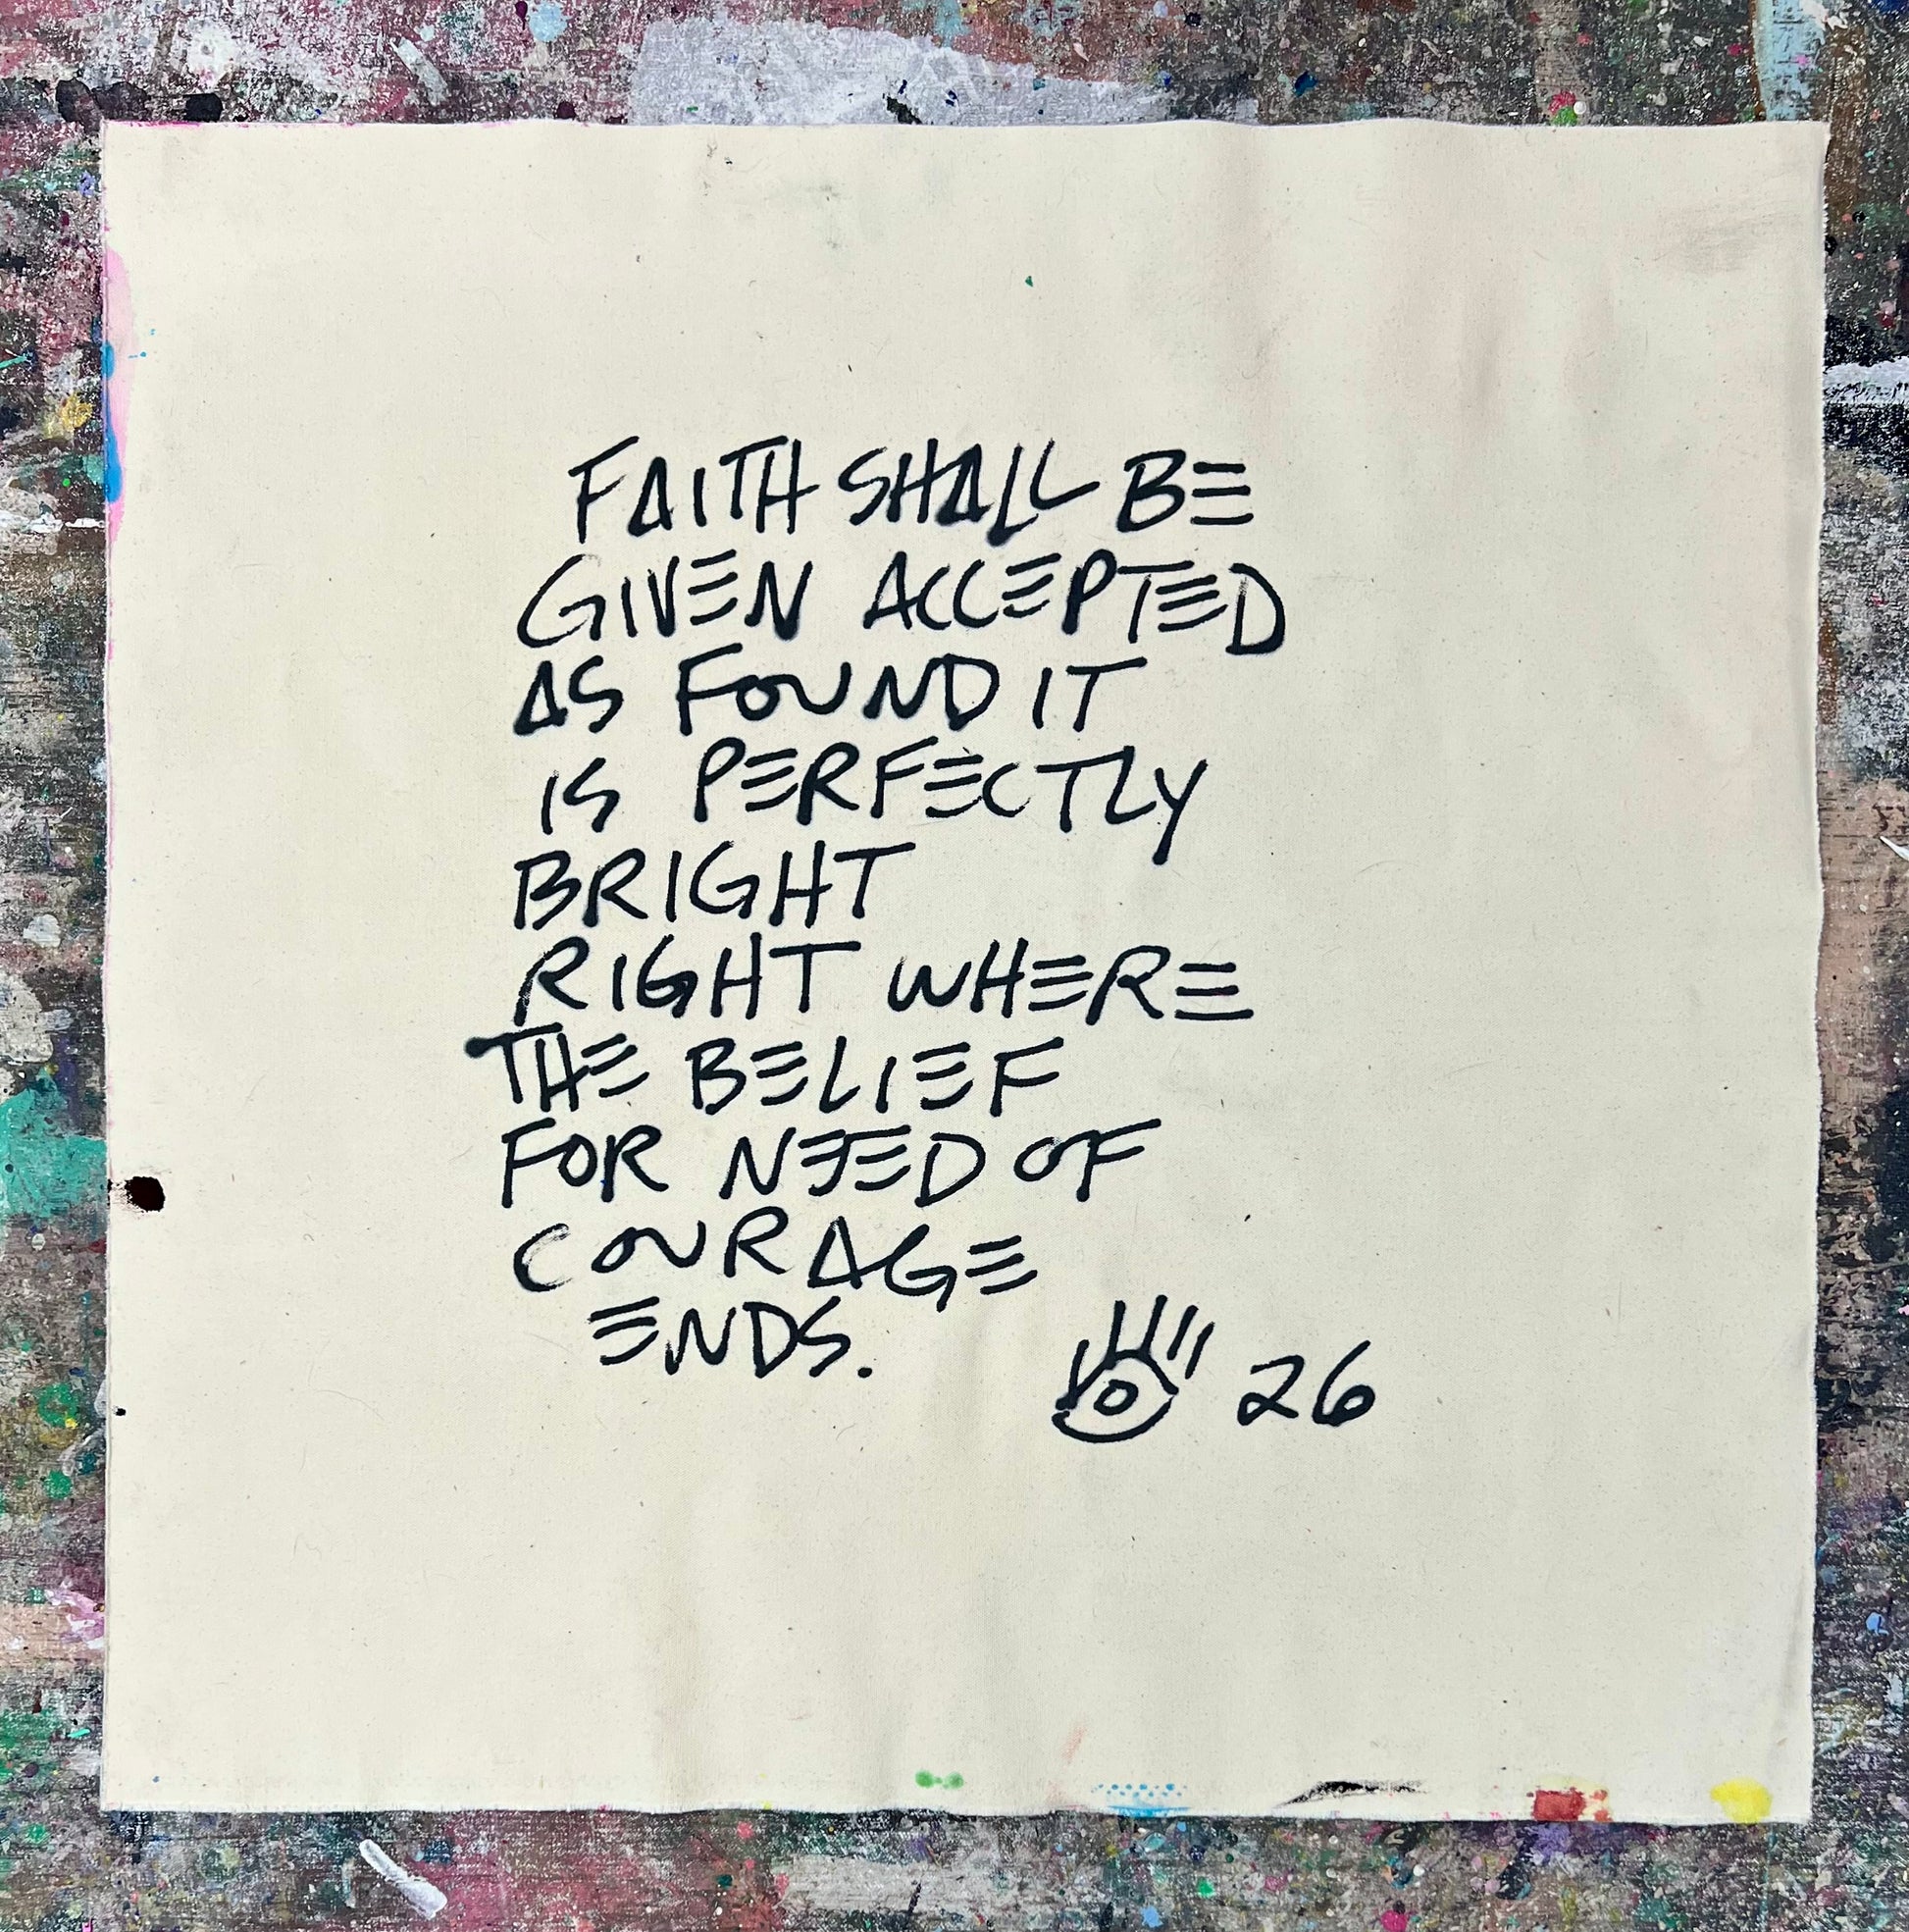 FAITH SHALL BE
GIVEN ACCEPTED
AS FOUND IT
IS PERFECTLY
BRIGHT
RIGHT WHERE
THE BELIEF
FOR NEED OF
COURAGE
ENDS.
26